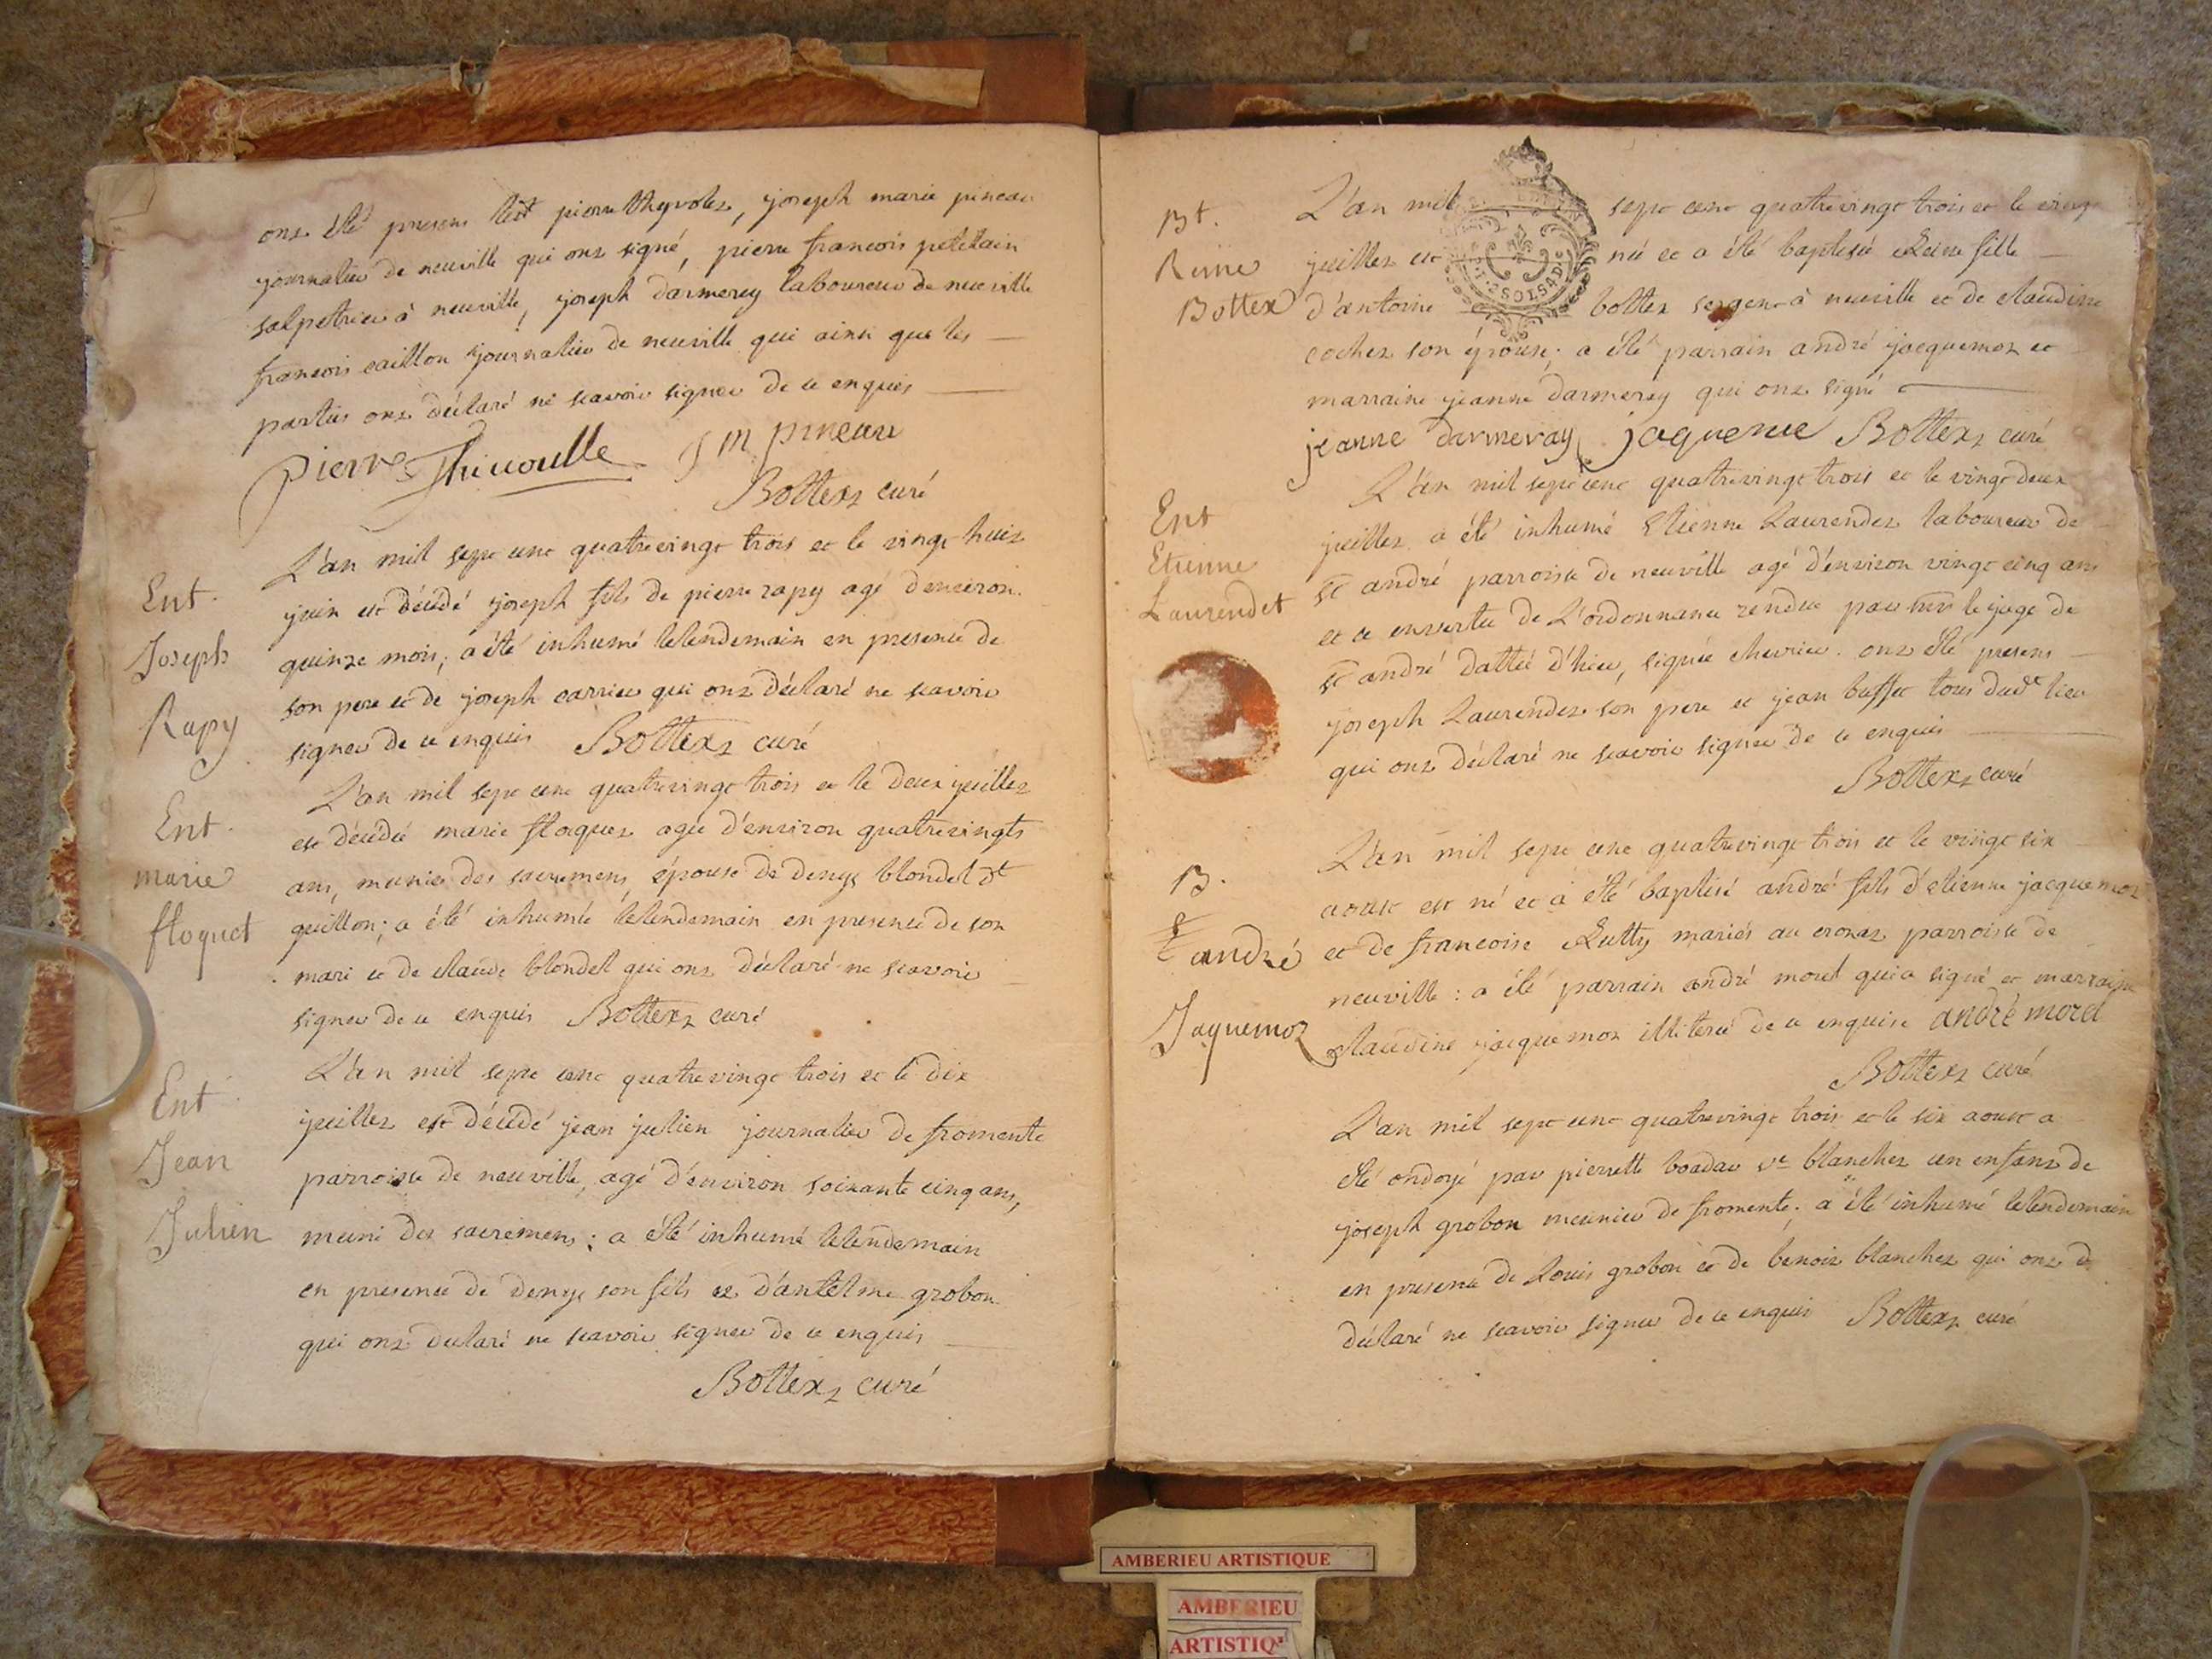 ont été presens pierre thevolet, joseph marie pineau
journalier de neuville qui ont signé, pierre francois petetain
salpetrier à neuville, joseph darmerey laboureur de neuville
francois caillon journalier de neuville qui ainsi que les
parties ont déclaré ne scavoir signer de ce enquis
Pierre Thivoulle J m pineau
Bottex curé
Ent.
Joseph
Rapy
L'an mil sept cent quatrevingt trois et le vingt huit
juin est décédé joseph fils de pierre rapy agé d'environ
quinze mois; a été inhumé lelendemain en presence de
son pere et de joseph carrier qui ont déclaré ne scavoir
signer de ce enquis Bottex curé
Ent.
marie
floquet
L'an mil sept cent quatrevingt trois et le deux juillet
est décédée marie floquet agée d'environ quatrevingts
ans, munie des sacremens, épouse de denys blondel dt
guillon; a été inhumée lelendemain en presence de son
mari et de claude blondel qui ont déclaré ne scavoir
signer de ce enquis Bottex curé
Ent
Jean
Julien
L'an mil sept cent quatrevingt trois et le dix
juillet est décédé jean julien journalier de fromente
parroisse de neuville, agé d'environ soixante cinq ans,
muni des sacremens; a été inhumé lelendemain
en presence de denys son fils et d'antelme grobon
qui ont declaré ne scavoir signer de ce enquis
Bottex curé
Bt.
Reine
Bottex
L'an mil sept cent quatrevingt trois et le
juillet est né et a été baptisée Reine fille
2 SOLS 4 D
d'antoine bottex sergent à neuville et de claudine
cochet son épouse; a été parrain andré jacquemot et
marraine jeanne darmerey qui ont signé
jeanne darmeray jaqueme Bottex curé
Ent
Etienne
Laurendet
L'an mil sept cent quatrevingt trois et le vingt deux
juillet a été inhumé Etienne Laurendet laboureur de
st andré parroisse de neuville agé d'environ vingt cinq ans
et ce en vertu de L'ordonnance rendue par mr le juge de
st andré dattée d'hier, signée chevrier. ont été presens
joseph Laurendet son pere et jean buffet tous dudt lieu
qui ont déclaré ne scavoir signer de ce enquis
Bottex curé
B.
andré
Jaquemot
L'an mil sept cent quatrevingt trois et le vingt six
aoust est né et a été baptisé andré fils d'etienne jacquemot
et de francoise Rutty mariés au cronat parroisse de
neuville: a été parrain andré morel qui a signé et marraine
claudine jacquemot illiterée de ce enquise andré morel
Bottex curé
L'an mil sept cent quatrevingt trois et le six aoust a
été ondoyé par pierrette boadar ve blanchet un enfant de
joseph grobon meunier de fromente; a été inhumé lelendemain
en presence de Louis grobon et de benoit blanchet qui ont d
déclaré ne scavoir signer de ce enquis Bottex curé
AMBERIEU ARTISTIQUE
AMBERIEU
ARTISTIQ